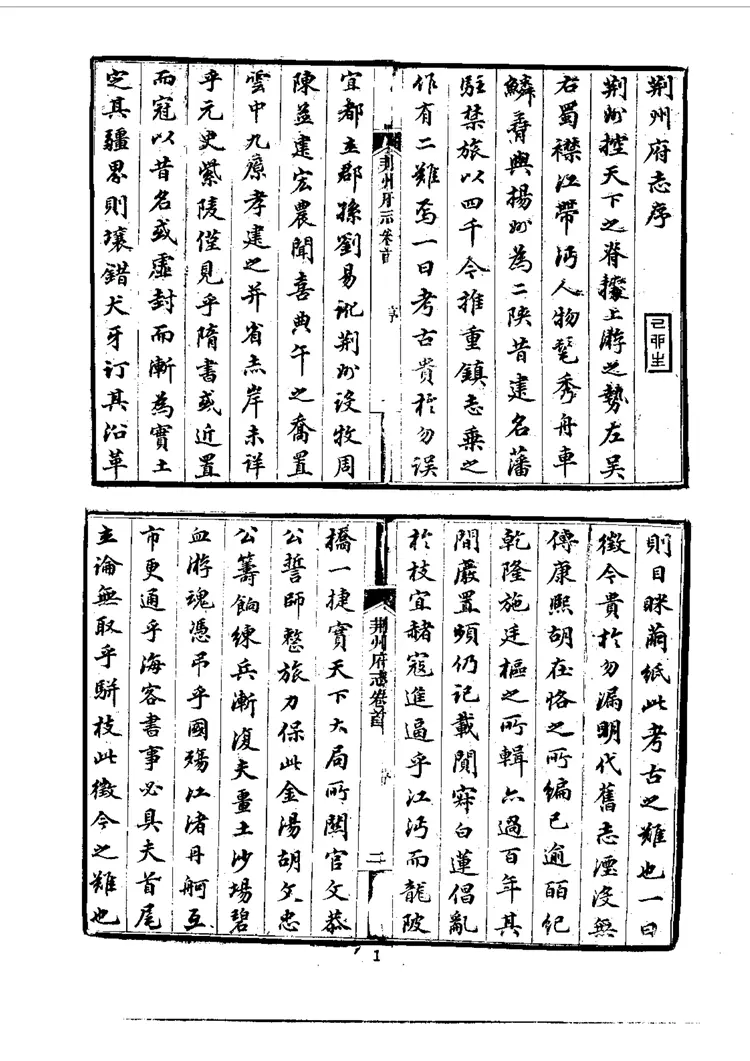 荆州府志序
荆州控天下之脊擥上游之勢左吳
右蜀襟江帶沔人物髦秀舟車
鱗脊與揚州為二陝昔建名藩
駐禁旅以四千今推重鎮志乘之
作有二難焉一曰考古貴於勿誤
荆州府志卷首
序
宜都立郡孫劉易訛荆州設牧周
陳益建宏農聞喜典午之喬置
雲中九原孝建之并省赤岸未詳
乎元史紫陵僅見乎隋書或近置
而冠以昔名或虛封而漸為實土
定其疆界則壤錯犬牙訂其沿革
則目眯繭紙此考古之難也一曰
徵今貴於勿漏明代舊志湮沒無
傳康熙胡在恪之所編已逾百紀
乾隆施廷樞之所輯亦過百年其
間廢置頻仍記載闃寂白蓮倡亂
於枝宜赭寇進逼乎江沔而龍陂
荆州府志卷首
序
二
橋一捷實天下大局所關官文恭
公誓師整旅力保此金湯胡文忠
公籌餉練兵漸復夫疆土沙場碧
血游魂憑弔乎國殤江渚丹舸互
市更通乎海客書事必具夫首尾
立論無取乎駢枝此徵今之難也
1